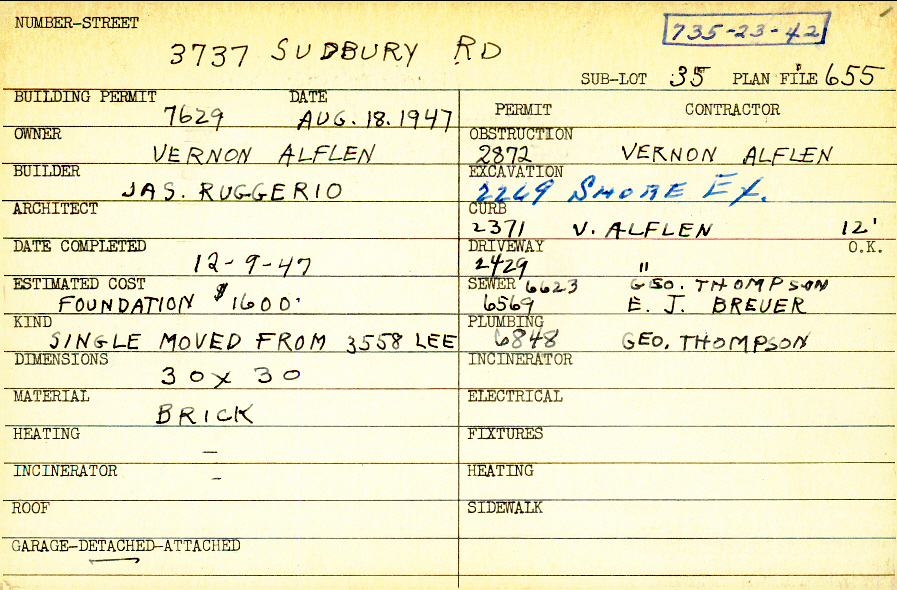 NUMBER-STREET
3737 SUDBURY RD
735-23-42
SUB-LOT 35 PLAN FILE 655
BUILDING PERMIT DATE
7629 AUG. 18. 1947
OWNER
VERNON ALFLEN
BUILDER
JAS. RUGGERIO
ARCHITECT
DATE COMPLETED
12-9-47
ESTIMATED COST
FOUNDATION $1600.
KIND
SINGLE MOVED FROM 3558 LEE
DIMENSIONS
30 x 30
MATERIAL
BRICK
HEATING
—
INCINERATOR
–
ROOF
GARAGE-DETACHED-ATTACHED
PERMIT CONTRACTOR
OBSTRUCTION
2872 VERNON ALFLEN
EXCAVATION
2269 SHORE EX.
CURB
2371 V. ALFLEN 12'
DRIVEWAY O.K.
2429 "
SEWER 6623 GEO. THOMPSON
6569 E. J. BREUER
PLUMBING
6848 GEO. THOMPSON
INCINERATOR
ELECTRICAL
FIXTURES
HEATING
SIDEWALK